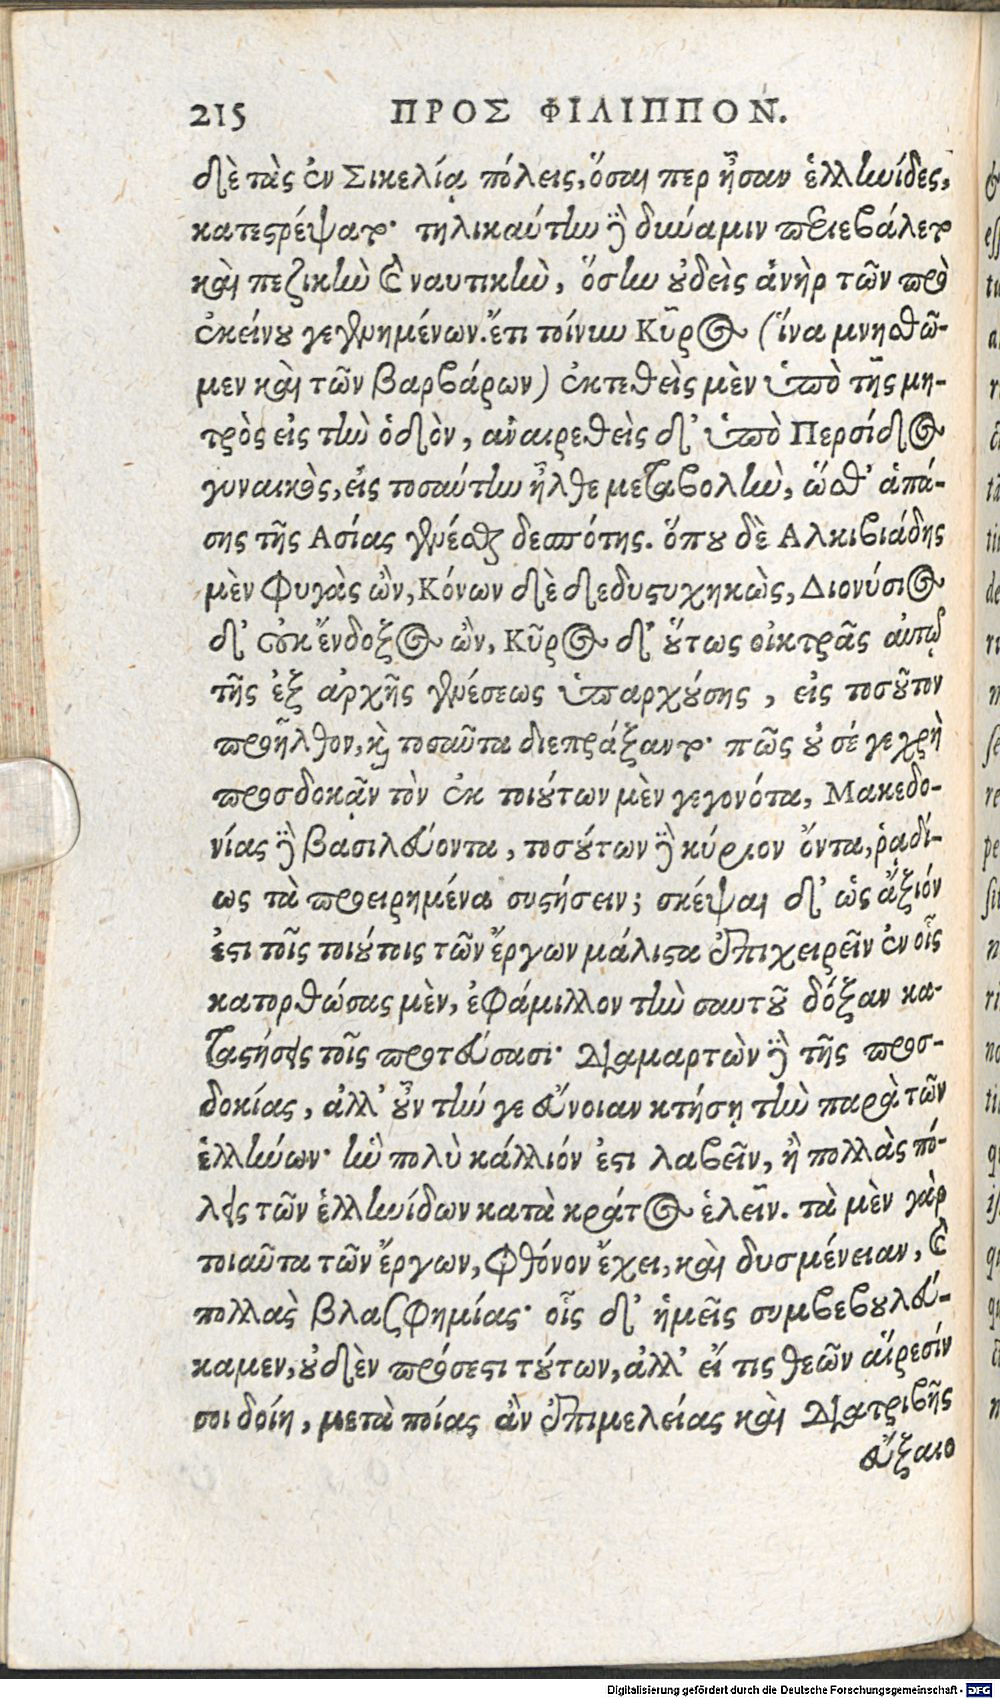 215 ΠΡΟΣ ΦΙΛΙΠΠΟΝ.
δὲ τὰς ἐν Σικελίᾳ πόλεις, ὅσαι περ ἦσαν ἑλληνίδες,
κατεστρέψατο· τηλικαύτην δὲ δύναμιν περιεβάλετο
καὶ πεζικὴν καὶ ναυτικὴν, ὅσην οὐδεὶς ἀνὴρ τῶν πρὸ
ἐκείνου γεγενημένων. ἔτι τοίνυν Κῦρος (ἵνα μνησθῶ-
μεν καὶ τῶν βαρβάρων) ἐκτεθεὶς μὲν ὑπὸ τῆς μη-
τρὸς εἰς τὴν ὁδὸν, ἀναιρεθεὶς δ' ὑπὸ Περσίδος
γυναικὸς, εἰς τοσαύτην ἦλθε μεταβολὴν, ὥσθ' ἁπά-
σης τῆς Ασίας γενέσθαι δεσπότης. ὅπου δὲ Αλκιβιάδης
μὲν φυγὰς ὢν, Κόνων δὲ δεδυστυχηκὼς, Διονύσιος
δ' οὐκ ἔνδοξος ὢν, Κῦρος δ' οὕτως οἰκτρᾶς αὐτῷ
τῆς ἐξ ἀρχῆς γενέσεως ὑπαρχούσης, εἰς τοσοῦτον
προῆλθον, καὶ τοσαῦτα διεπράξαντο· πῶς οὐ σέ γε χρὴ
προσδοκᾷν τὸν ἐκ τοιούτων μὲν γεγονότα, Μακεδο-
νίας δὲ βασιλεύοντα, τοσούτων δὲ κύριον ὄντα, ῥᾳδί-
ως τὰ προειρημένα συστήσειν; σκέψαι δ' ὡς ἄξιόν
ἐστι τοῖς τοιούτοις τῶν ἔργων μάλιστα ἐπιχειρεῖν ἐν οἷς
κατορθώσας μὲν, ἐφάμιλλον τὴν σαυτοῦ δόξαν κα-
ταστήσεις τοῖς πρωτεύσασι· διαμαρτὼν δὲ τῆς προσ-
δοκίας, ἀλλ' οὖν τήν γε εὔνοιαν κτήσῃ τὴν παρὰ τῶν
ἑλλήνων· ἣν πολὺ κάλλιόν ἐστι λαβεῖν, ἢ πολλὰς πό-
λεις τῶν ἑλληνίδων κατὰ κράτος ἑλεῖν. τὰ μὲν γὰρ
τοιαῦτα τῶν ἔργων, φθόνον ἔχει, καὶ δυσμένειαν, καὶ
πολλὰς βλασφημίας· οἷς δ' ἡμεῖς συμβεβουλεύ-
καμεν, οὐδὲν πρόσεστι τούτων, ἀλλ' εἴ τις θεῶν αἵρεσίν
σοι δοίη, μετὰ ποίας ἂν ἐπιμελείας καὶ διατριβῆς
εὔξαιο
Digitalisierung gefördert durch die Deutsche Forschungsgemeinschaft - DFG